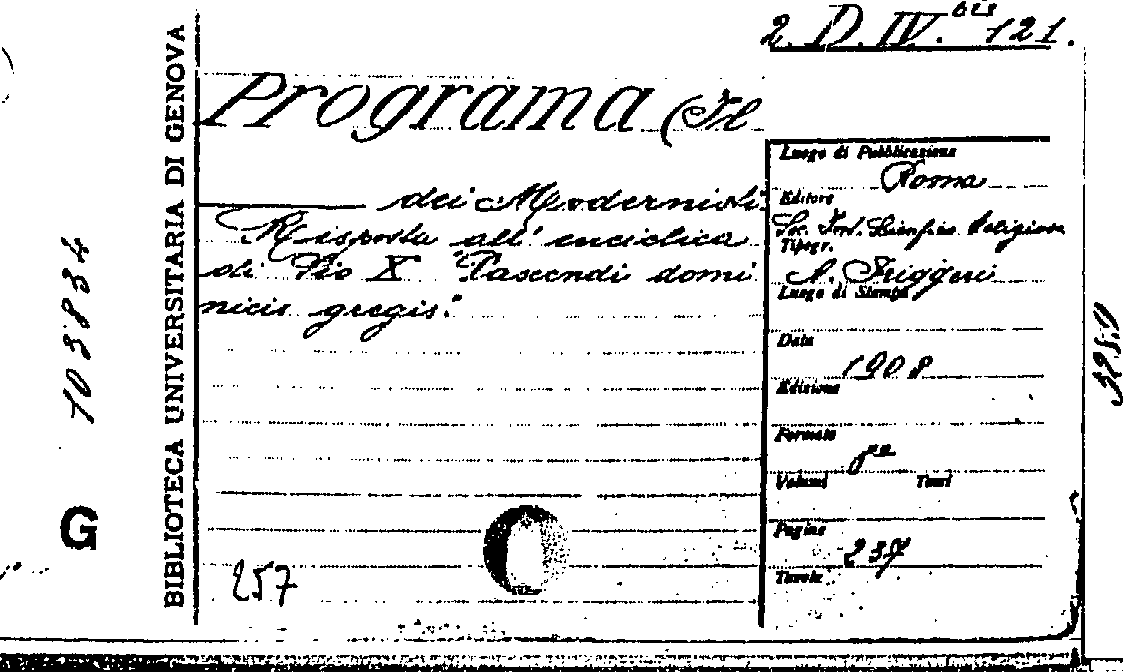 2. D. IV. bis 121.
Programa (Il
dei Modernisti.
Risposta all' enciclica
di Pio X "Pascendi domi
nicis gregis."
257
Luogo di Pubblicazione
Roma
Editore
Soc. Int. Scienfico Religiosa
Tipogr.
A. Friggeri
Luogo di Stampa
Data
1908
Edizione
Formato
8°
Volumi Tomi
Pagine
237
Tavole
BIBLIOTECA UNIVERSITARIA DI GENOVA
103834
G